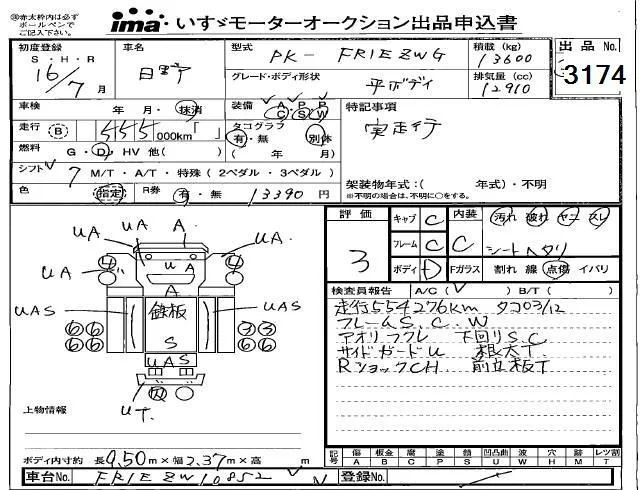 ※赤太枠内は必ず
ボールペンで
ご記入下さい。
ima いすゞモーターオークション出品申込書
初度登録 車名 型式 PK- FR1EZWG 積載 (kg) 13600 出品 No.
S・H・R
16/7 月 日野 グレード・ボディ形状 平ボディ 排気量 (cc) 12910 3174
車検 年・月・抹消 装備 A P P C S W 特記事項
走行 B 555 000km「 」 タコグラフ 有・無 別体 実走行
燃料 G・D・HV 他( ) ( 年 月)
シフト 7 M/T・A/T・特殊 (2ペダル・3ペダル) 架装物年式:( 年式)・不明
※不明の場合は、不明に○をする。
色 指定 R券 有・無 13390 円
評価 3 キャブ C 内装 C 汚れ 破れ ヤニ スレ
フレーム C シートヘタリ
ボディ D Fガラス 割れ 線 点傷 イバリ
検査員報告 A/C( ) B/T( )
走行554276km タコ03/12
フレームS.C.W
アオリフクレ 下回りS.C
サイドガードU 根太T.
RショックCH 前立板T
UA A UA.
UA 4 UA 4
A
UAS 鉄板 UAS
66 S 33
66 UAS 66
UT.
上物情報
ボディ内寸約 長9.50m×幅2.37m×高 m
記号 傷 A 板金 B 腐 C 塗 P 錆 S 凹凸曲 U 波 W 穴 H 跡 M レツ割 T
車台No. FR1EZW10852 登録No.